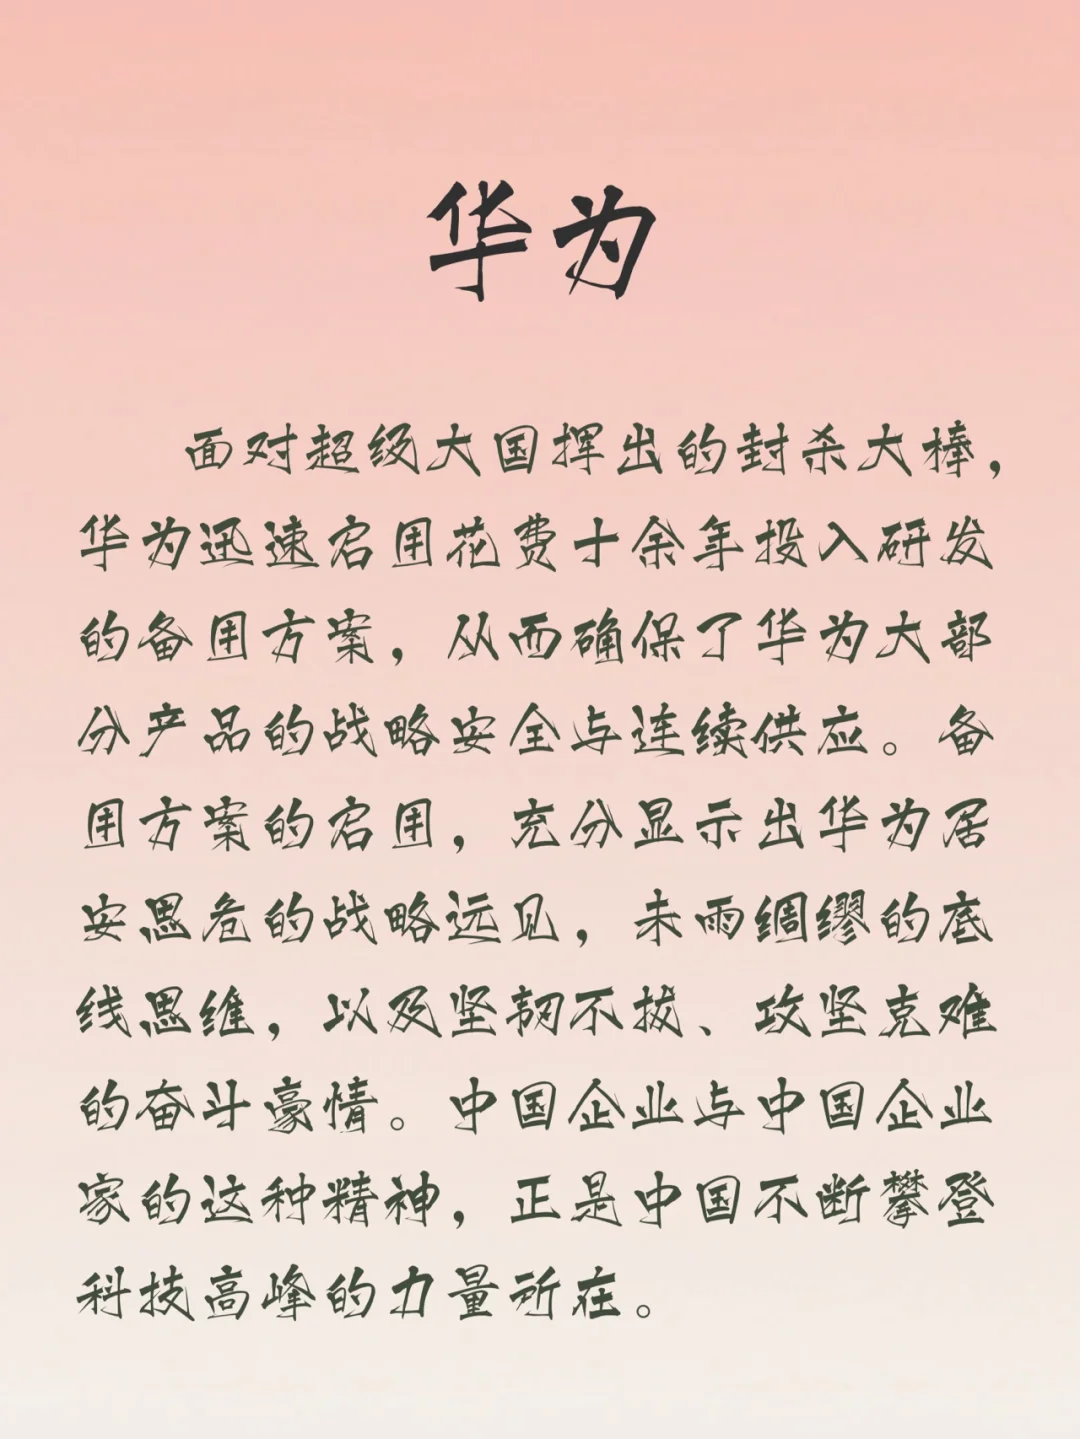 华为
面对超级大国挥出的封杀大棒，
华为迅速启用花费十余年投入研发
的备用方案，从而确保了华为大部
分产品的战略安全与连续供应。备
用方案的启用，充分显示出华为居
安思危的战略远见，未雨绸缪的底
线思维，以及坚韧不拔、攻坚克难
的奋斗豪情。中国企业与中国企业
家的这种精神，正是中国不断攀登
科技高峰的力量所在。